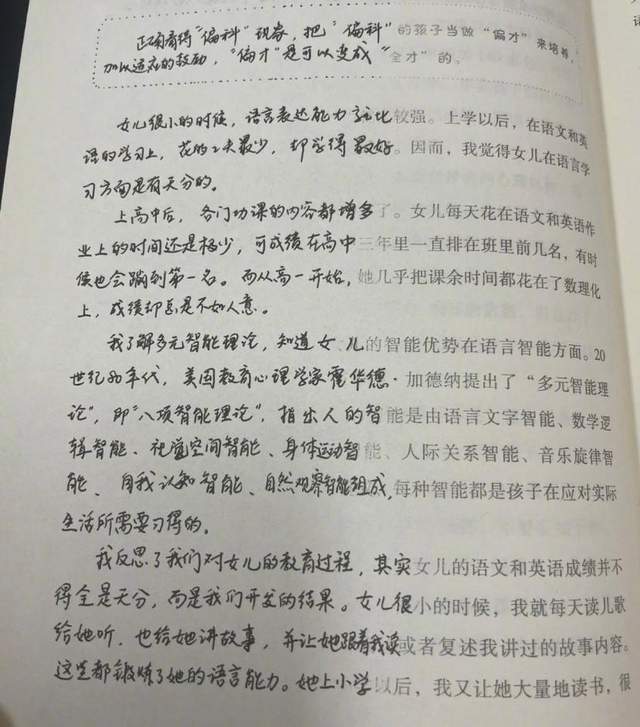 正确看待“偏科”现象，把“偏科”的孩子当做“偏才”来培养，
加以适应的鼓励，“偏才”是可以变成“全才”的。
女儿很小的时候，语言表达能力就比较强。上学以后，在语文和英
语的学习上，花的工夫最少，却学得最好。因而，我觉得女儿在语言学
习方面是有天分的。
上高中后，各门功课的内容都增多了。女儿每天花在语文和英语作
业上的时间还是极少，可成绩在高中三年里一直排在班里前几名，有时
候也会蹦到第一名。而从高一开始，她几乎把课余时间都花在了数理化
上，成绩却总是不如人意。
我了解多元智能理论，知道女儿的智能优势在语言智能方面。20
世纪80年代，美国教育心理学家霍华德·加德纳提出了“多元智能理
论”，即“八项智能理论”，指出人的智能是由语言文字智能、数学逻
辑智能、视觉空间智能、身体运动智能、人际关系智能、音乐旋律智
能、自我认知智能、自然观察智能组成，每种智能都是孩子在应对实际
生活所需要习得的。
我反思了我们对女儿的教育过程，其实女儿的语文和英语成绩并不
得全是天分，而是我们开发的结果。女儿很小的时候，我就每天读儿歌
给她听，也给她讲故事，并让她跟着我读或者复述我讲过的故事内容。
这些都锻炼了她的语言能力。她上小学以后，我又让她大量地读书，很